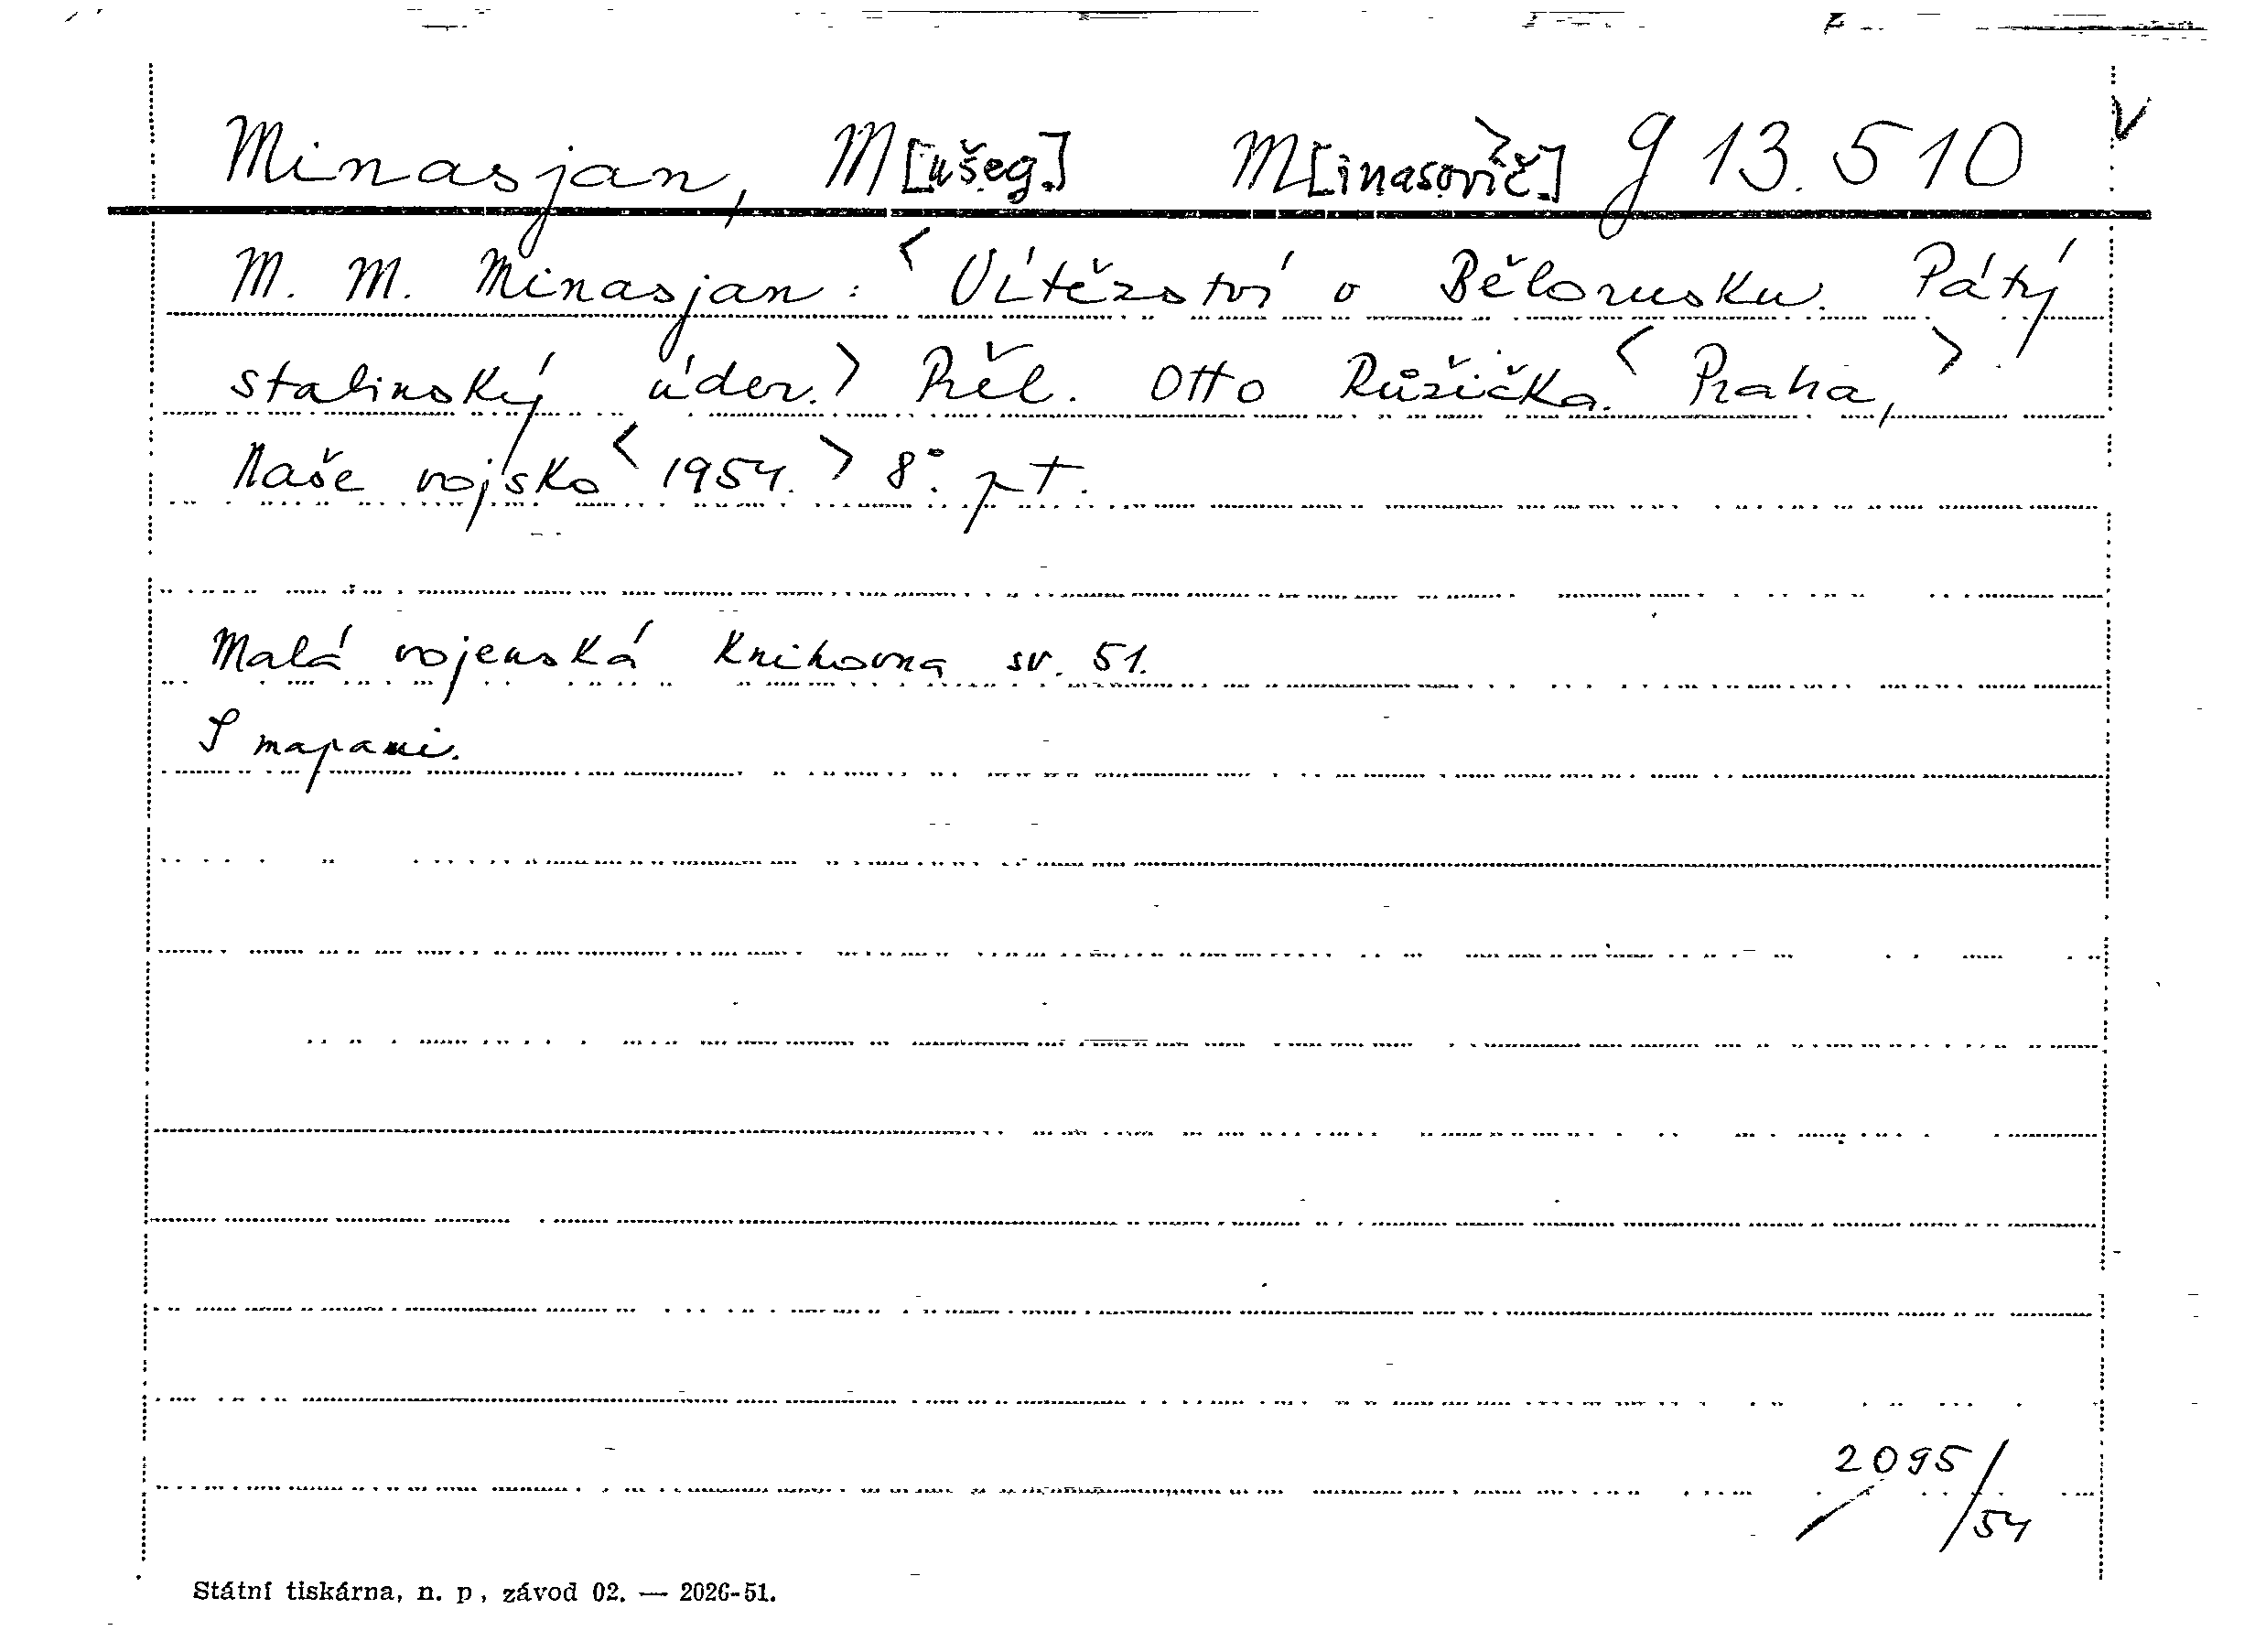 Minasjan, M[ušeg.] M[inasovič.] g 13.510
M. M. Minasjan: <Vítězství v Bělorusku. Pátý
stalinský úder.> Přel. Otto Růžička. <Praha,>
Naše vojsko <1954.> 8°. pt.
Malá vojenská knihovna sv. 51.
S mapami.
2095/54
Státní tiskárna, n. p., závod 02. — 2026-51.